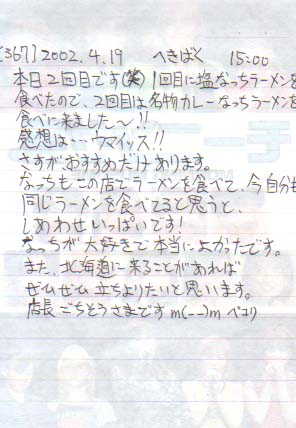 [367] 2002.4.19 へきばく 15:00
本日2回目です(笑) 1回目に塩なっちラーメンを
食べたので、2回目は名物カレーなっちラーメンを
食べに来ました〜!!
感想は…ウマイッス!!
さすが、おすすめだけあります。
なっちもこの店でラーメンを食べて、今自分も
同じラーメンを食べてると思うと、
しあわせいっぱいです!
なっちが大好きで本当によかったです。
また、北海道に来ることがあれば
ぜひぜひ立ちよりたいと思います。
店長ごちそうさまです m(__)m ペコリ